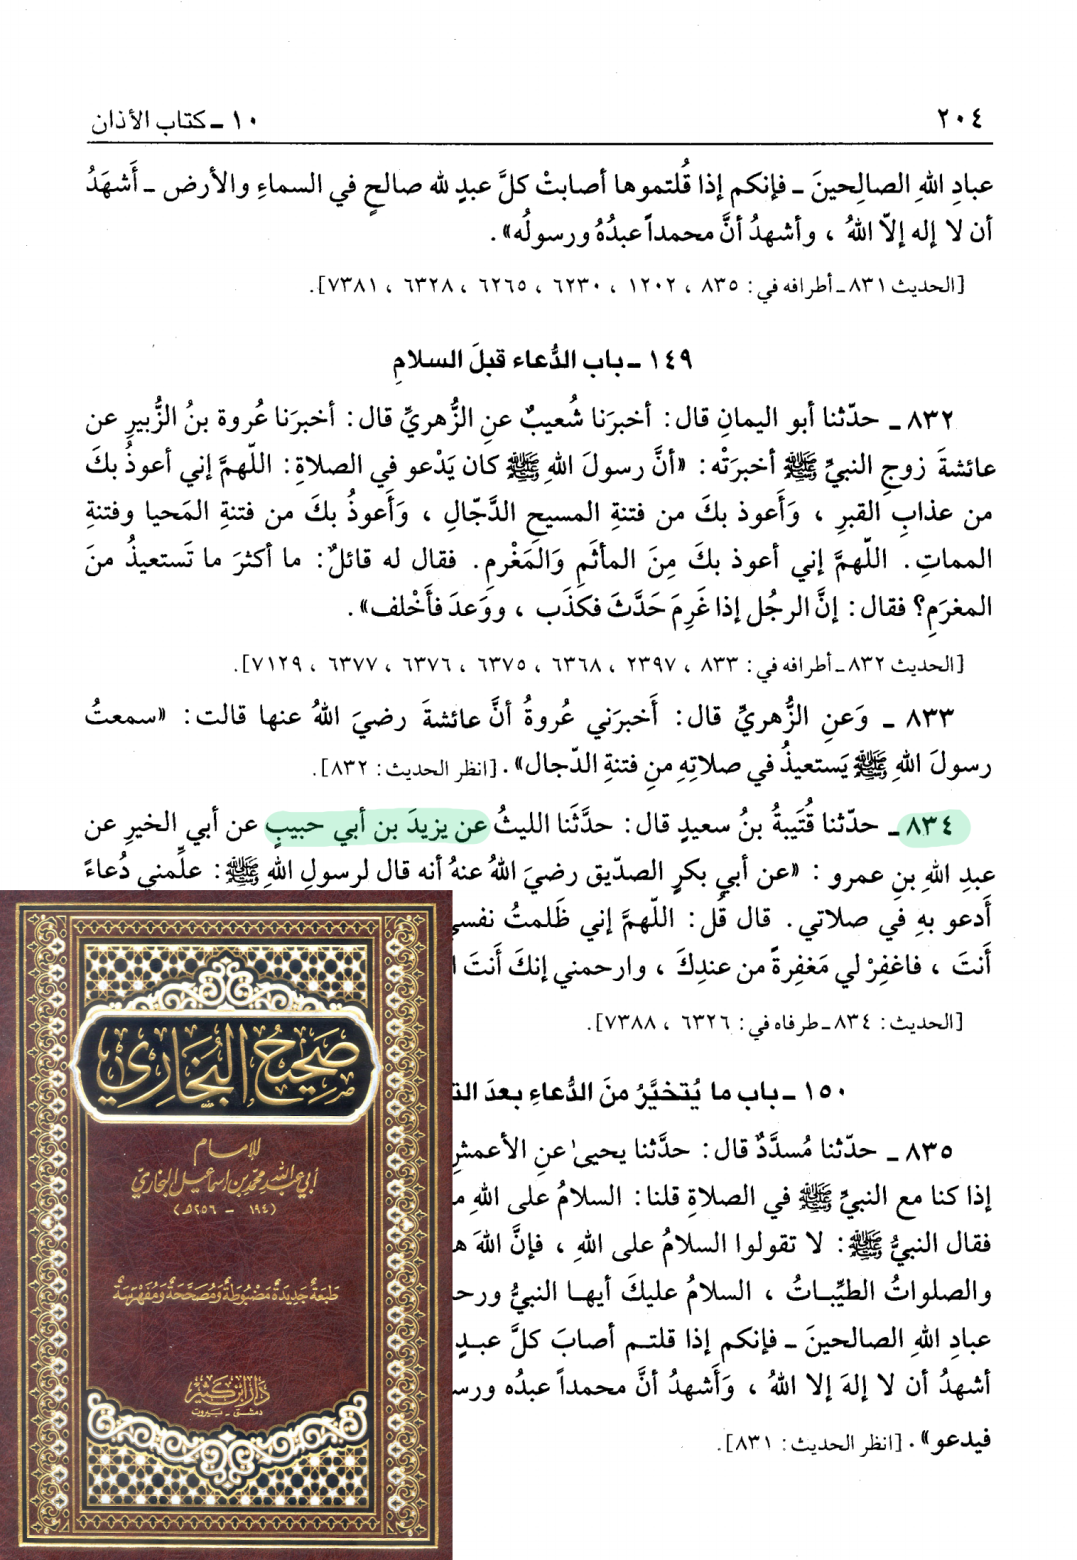 ٢٠٤
١٠ ـ كتاب الأذان
عبادِ اللهِ الصالِحينَ ـ فإنكم إذا قُلتموها أصابتْ كلَّ عبدٍ لله صالحٍ في السماءِ والأرض ـ أَشهَدُ
أن لا إله إلاّ اللهُ ، وأشهدُ أنَّ محمداً عبدُهُ ورسولُه».
[الحديث ٨٣١ ـ أطرافه في: ٨٣٥ ، ١٢٠٢ ، ٦٢٣٠ ، ٦٢٦٥ ، ٦٣٢٨ ، ٧٣٨١].
١٤٩ ـ باب الدُّعاء قبلَ السلامِ
٨٣٢ ـ حدّثنا أبو اليمانِ قال: أخبرَنا شُعيبٌ عنِ الزُّهريِّ قال: أخبرَنا عُروة بنُ الزُّبيرِ عن
عائشةَ زوجِ النبيِّ ﷺ أخبرَتْه: «أنَّ رسولَ اللهِ ﷺ كان يَدْعو في الصلاةِ: اللهمَّ إني أعوذُ بكَ
من عذابِ القبرِ ، وَأَعوذ بكَ من فتنةِ المسيحِ الدَّجّالِ ، وَأَعوذُ بكَ من فتنةِ المَحيا وفتنةِ
المماتِ. اللّهمَّ إني أعوذ بكَ مِنَ المأثَمِ وَالمَغْرمِ. فقال له قائلٌ: ما أكثرَ ما تَستعيذُ منَ
المغرَمِ؟ فقال: إنَّ الرجُل إذا غَرِمَ حَدَّثَ فكذَب ، ووَعدَ فأَخْلف».
[الحديث ٨٣٢ ـ أطرافه في: ٨٣٣ ، ٢٣٩٧ ، ٦٣٦٨ ، ٦٣٧٥ ، ٦٣٧٦ ، ٦٣٧٧ ، ٧١٢٩].
٨٣٣ ـ وَعنِ الزُّهريِّ قال: أَخبرَني عُروةُ أنَّ عائشةَ رضيَ اللهُ عنها قالت: «سمعتُ
رسولَ اللهِ ﷺ يَستعيذُ في صلاتِهِ منِ فتنةِ الدّجال». [انظر الحديث: ٨٣٢].
٨٣٤ ـ حدّثنا قُتَيبةُ بنُ سعيدٍ قال: حدَّثَنا الليثُ عن يزيدَ بن أبي حبيبٍ عن أبي الخيرِ عن
عبدِ اللهِ بنِ عمرو : «عن أبي بكرٍ الصدّيق رضيَ اللهُ عنهُ أنه قال لرسولِ اللهِ ﷺ: علِّمني دُعاءً
أَدعو بهِ في صلاتي. قال قُل: اللّهمَّ إني ظَلمتُ نفسي
أَنتَ ، فاغفِرْ لي مَغفِرةً من عندِكَ ، وارحمني إنكَ أَنتَ ا
[الحديث: ٨٣٤ ـ طرفاه في: ٦٣٢٦ ، ٧٣٨٨].
١٥٠ ـ باب ما يُتخيَّرُ منَ الدُّعاءِ بعدَ الت
٨٣٥ ـ حدّثنا مُسدَّدٌ قال: حدَّثنا يحيىٰ عنِ الأعمشِ
إذا كنا مع النبيِّ ﷺ في الصلاةِ قلنا: السلامُ على اللهِ م
فقال النبيُّ ﷺ: لا تقولوا السلامُ على اللهِ ، فإنَّ اللهَ ه
والصلواتُ الطيِّباتُ ، السلامُ عليكَ أيها النبيُّ ورح
عبادِ اللهِ الصالحينَ ـ فإنكم إذا قلتم أصابَ كلَّ عبدٍ
أشهدُ أن لا إلهَ إلا اللهُ ، وَأَشهدُ أنَّ محمداً عبدُه ورس
فيدعو». [انظر الحديث: ٨٣١].
صَحِيحُ البُخَارِي
للإمام
أبي عبد الله محمد بن إسماعيل البخاري
(١٩٤ - ٢٥٦هـ)
طبعَةٌ جَديدَة مَضبُوطَة وَمُصَحَّحَة وَمُفَهرَسَة
دَار ابن كثير
دمشق - بيروت